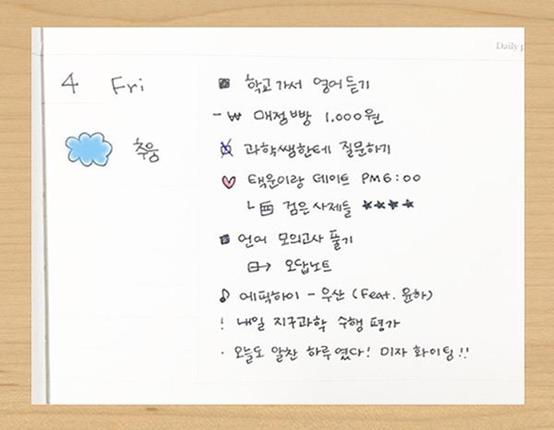 Daily p
4 Fri
추움
■ 학교가서 영어듣기
- ₩ 매점빵 1,000원
과학쌤한테 질문하기
♡ 택운이랑 데이트 PM 6:00
└ 검은사제들 ★★★★
■ 언어 모의고사 풀기
→ 오답노트
♪ 에픽하이 - 우산 (Feat. 윤하)
! 내일 지구과학 수행평가
· 오늘도 알찬 하루였다! 미자 화이팅!!